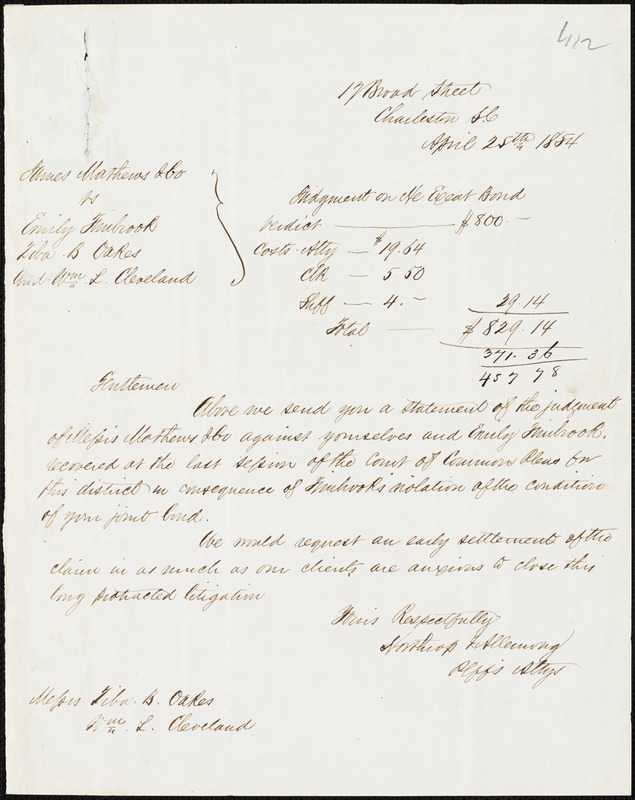 412
17 Broad Street
Charleston S.C
April 25th 1854
James Mathews & Co
vs
Emily Timbrook
Ziba . B Oakes
and Wm L. Cleveland
Judgment on Ne Exeat Bond
Verdict — $800. —
Costs. Atty — $19.64
Clk — 5 50
Shff — 4. — 29.14
Total — $829.14
371.36
457 78
Gentlemen
Above we send you a statement of the judgment
of Messrs Mathews & Co against yourselves and Emily Timbrook,
recovered at the last session of the Court of Common Pleas for
this district in consequence of Timbrooks violation of the conditions
of your joint bond.
We would request an early settlement of the
claim in as much as our clients are anxious to close this
long protracted litigation
Yours Respectfully
Northrop & Allemong
Plffs Attys
Messrs Ziba . B. Oakes
Wm L. Cleveland